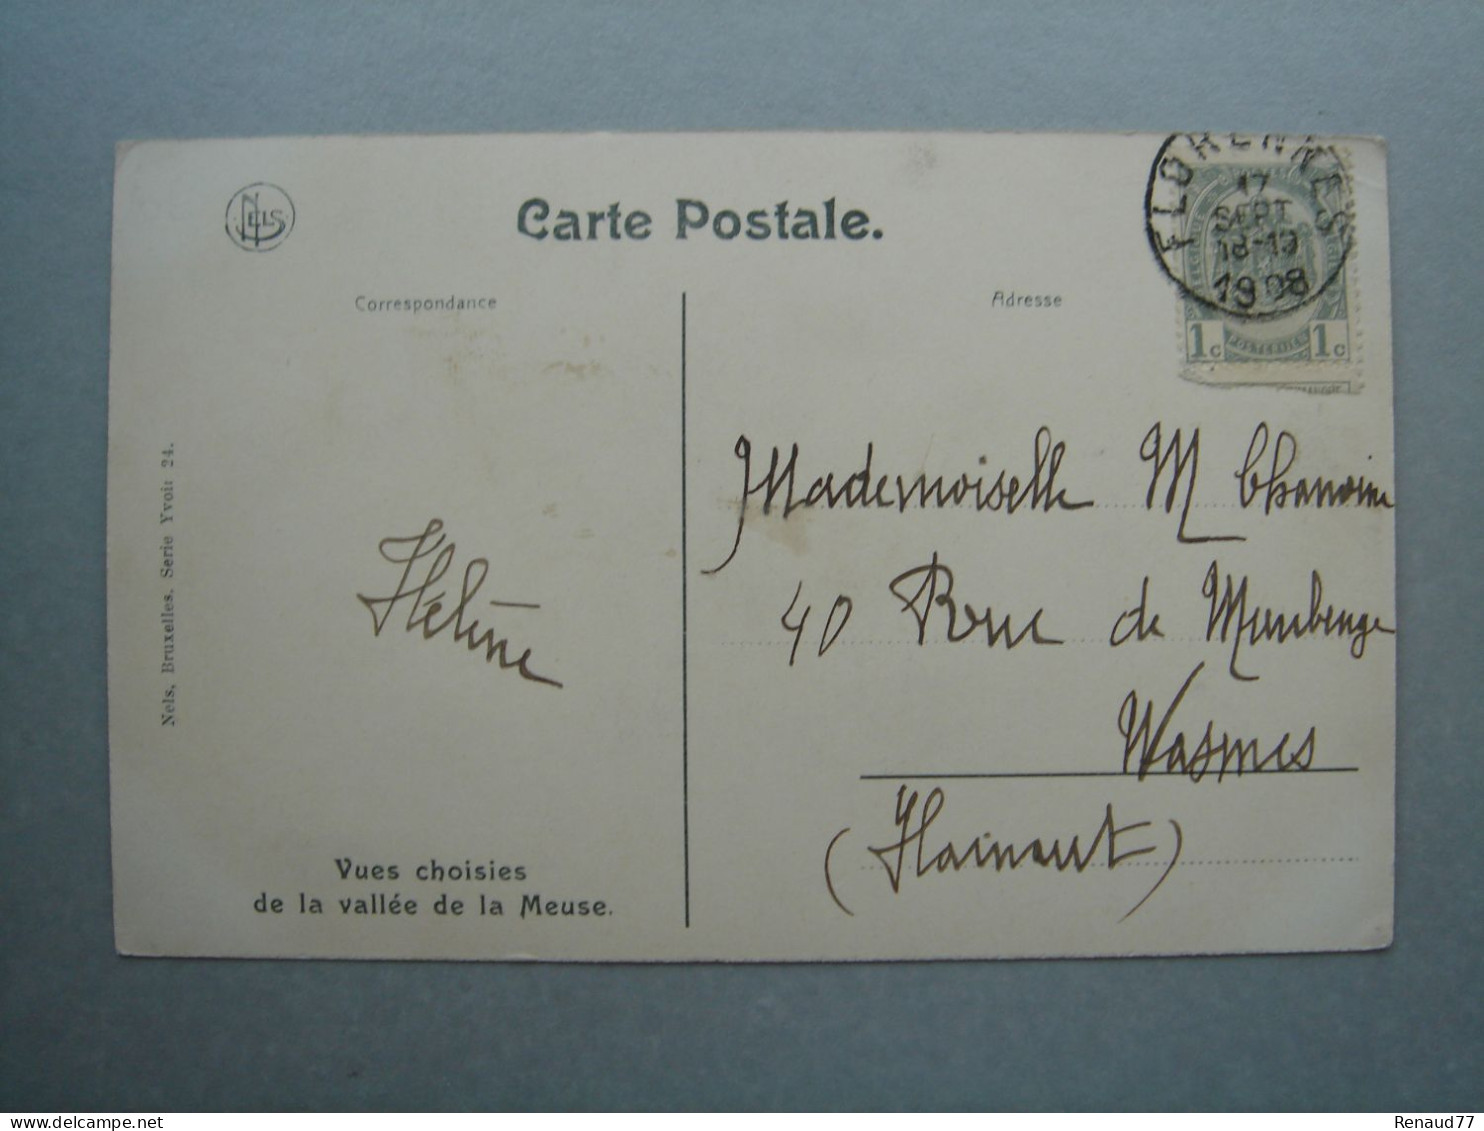 NELS
Carte Postale.
Correspondance
Adresse
FLORENNES
17
SEPT
18-19
1908
1c 1c
Mademoiselle M Chanoine
40 Rue de Maubeuge
Wasmes
(Hainaut)
Hélène
Nels, Bruxelles. Serie Yvoir 24.
Vues choisies
de la vallée de la Meuse.
Renaud77